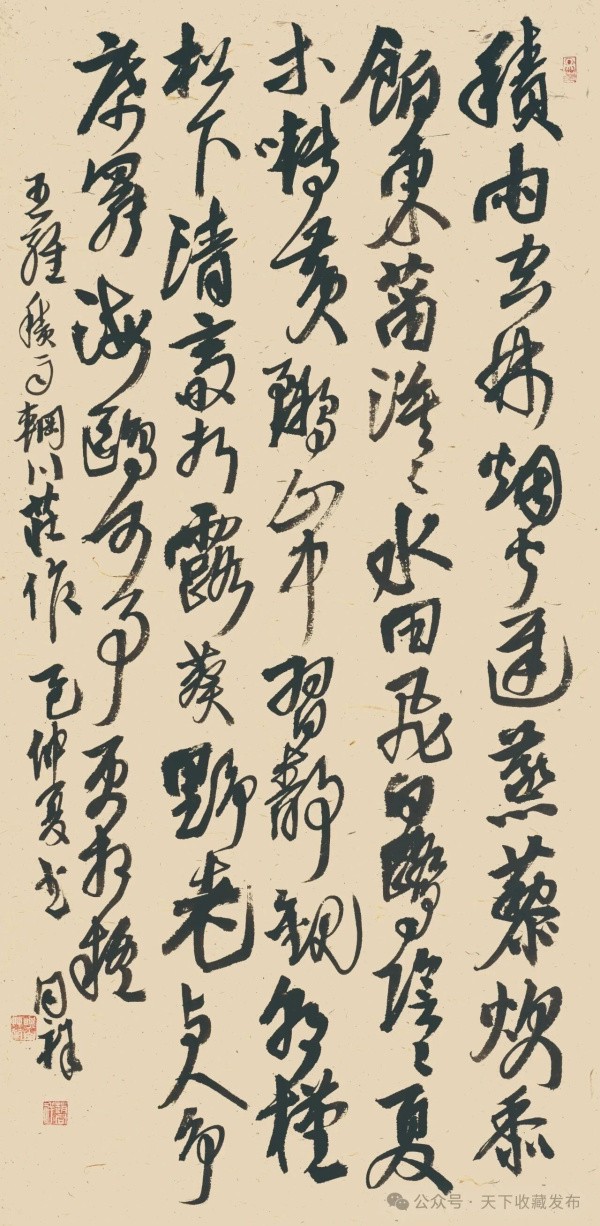 積雨空林烟火遲蒸藜炊黍
餉東菑漠〻水田飛白鷺陰〻夏
木囀黃鸝山中習靜觀朝槿
松下清齋折露葵野老与人爭
席罷海鷗何事更相疑
王維積雨輞川莊作 乙巳仲夏书 同祥
公众号 · 天下收藏发布